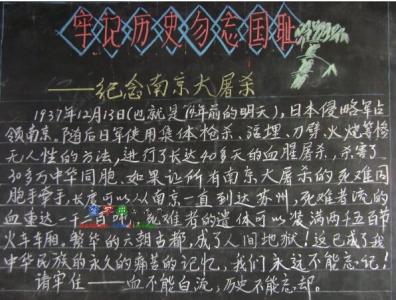 牢记历史勿忘国耻
——纪念南京大屠杀
1937年12月13日(也就是 年前的明天),日本侵略军占
领南京。随后日军使用集体枪杀、活埋、刀劈、火烧等惨
无人性的方法,进行了长达40多天的血腥屠杀,杀害了
30多万中华同胞。如果让所有南京大屠杀的死难同
胞手牵手,长度可以从南京一直到达苏州,死难者流的
血重达一千 死难者的遗体可以装满两千五百节
火车车厢。繁华的六朝古都,成了人间地狱!这已成了我
中华民族的永久的痛苦的记忆,我们永远不能忘记!
请牢住——血不能白流,历史不能忘却。